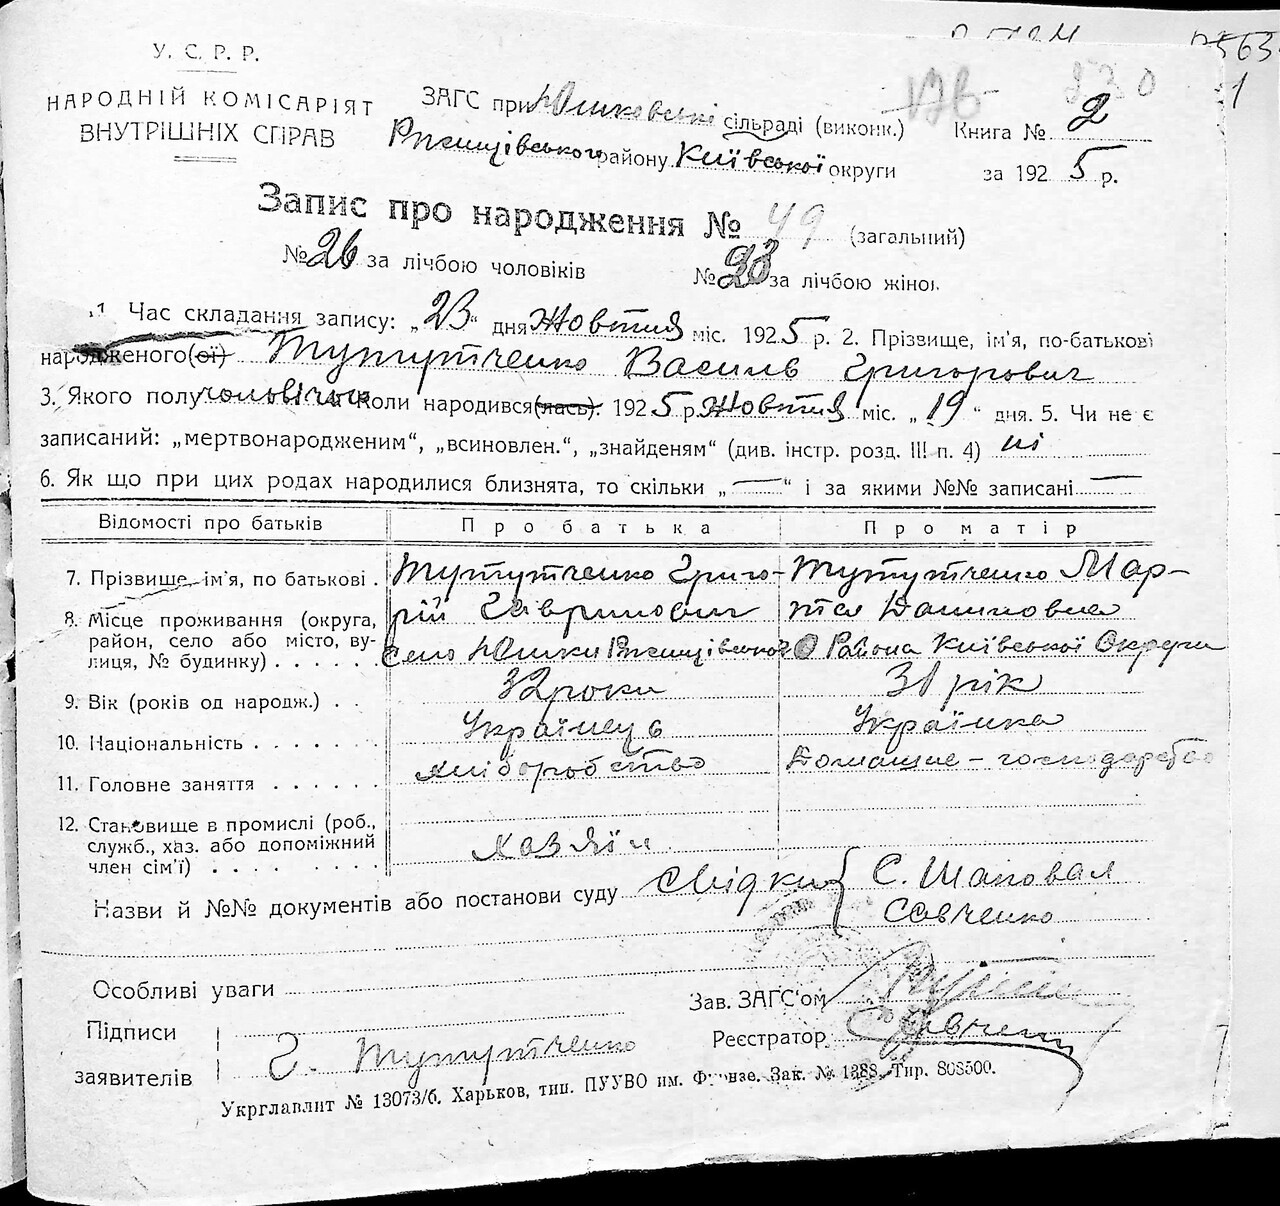 У. С. Р. Р.
НАРОДНІЙ КОМІСАРІЯТ
ВНУТРІШНІХ СПРАВ
ЗАГС при Юшковські сільраді (виконк.)
Ржищівського району Київської округи
176
230
Книга № 2
за 1925 р.
1
Запис про народження № 49 (загальний)
№ 26 за лічбою чоловіків № 23 за лічбою жінок
1 Час складання запису: „23“ дня Жовтня міс. 1925 р. 2. Прізвище, ім'я, по-батькові
народженого(ої) Тутутченко Василь Григорович
3. Якого полу чоловічого Коли народився(лась). 1925 р. Жовтня міс. „19“ дня. 5. Чи не є
записаний: „мертвонародженим“, „всиновлен.“, „знайденям“ (див. інстр. розд. III п. 4) ні
6. Як що при цих родах народилися близнята, то скільки „—“ і за якими №№ записані —
Відомості про батьків Про батька Про матір
7. Прізвище, ім'я, по батькові . Тутутченко Григо- Тутутченко Мар-
рій Гаврилович тя Даниловна
8. Місце проживання (округа,
район, село або місто, ву-
лиця, № будинку) . . . . . Село Юшки Ржищівського Района Київської Округи
9. Вік (років од народж.) . . 32 роки 31 рік
10. Національність . . . . . . . Українець Українка
11. Головне заняття . . . . . . хліборобство Домашнє - господарство
12. Становище в промислі (роб.,
служб., хаз. або допоміжний
член сім'ї) . . . . . . . . . хазяїн
Назви й №№ документів або постанови суду Свідки { С. Шаповал
Савченко
Особливі уваги
Зав. ЗАГС'ом
Підписи
заявителів Г. Тутутченко
Реєстратор
Укрглавлит № 13073/б. Харьков, тип. ПУУВО им. Фрунзе. Зак. № 1388. Тир. 808500.